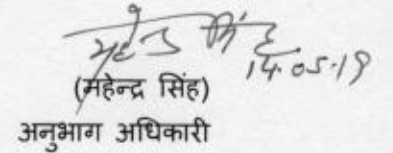 महेन्द्र सिंह
14.05.19
(महेन्द्र सिंह)
अनुभाग अधिकारी